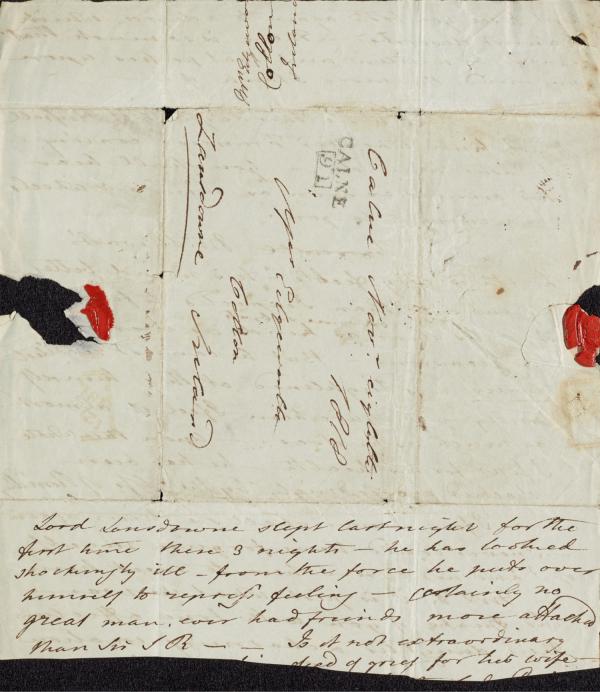 Calne Nov.r eighth
1818
Mrs Edgeworth
Ireland
Lansdowne
CALNE
91
Lord Lansdowne slept last night for the
first time these 3 nights – he has looked
shockingly ill – from the force he puts over
himself to repress feeling – certainly no
great man ever had friends more attached
than Sir S R – – Is it not extraordinary
died of grief for his wife